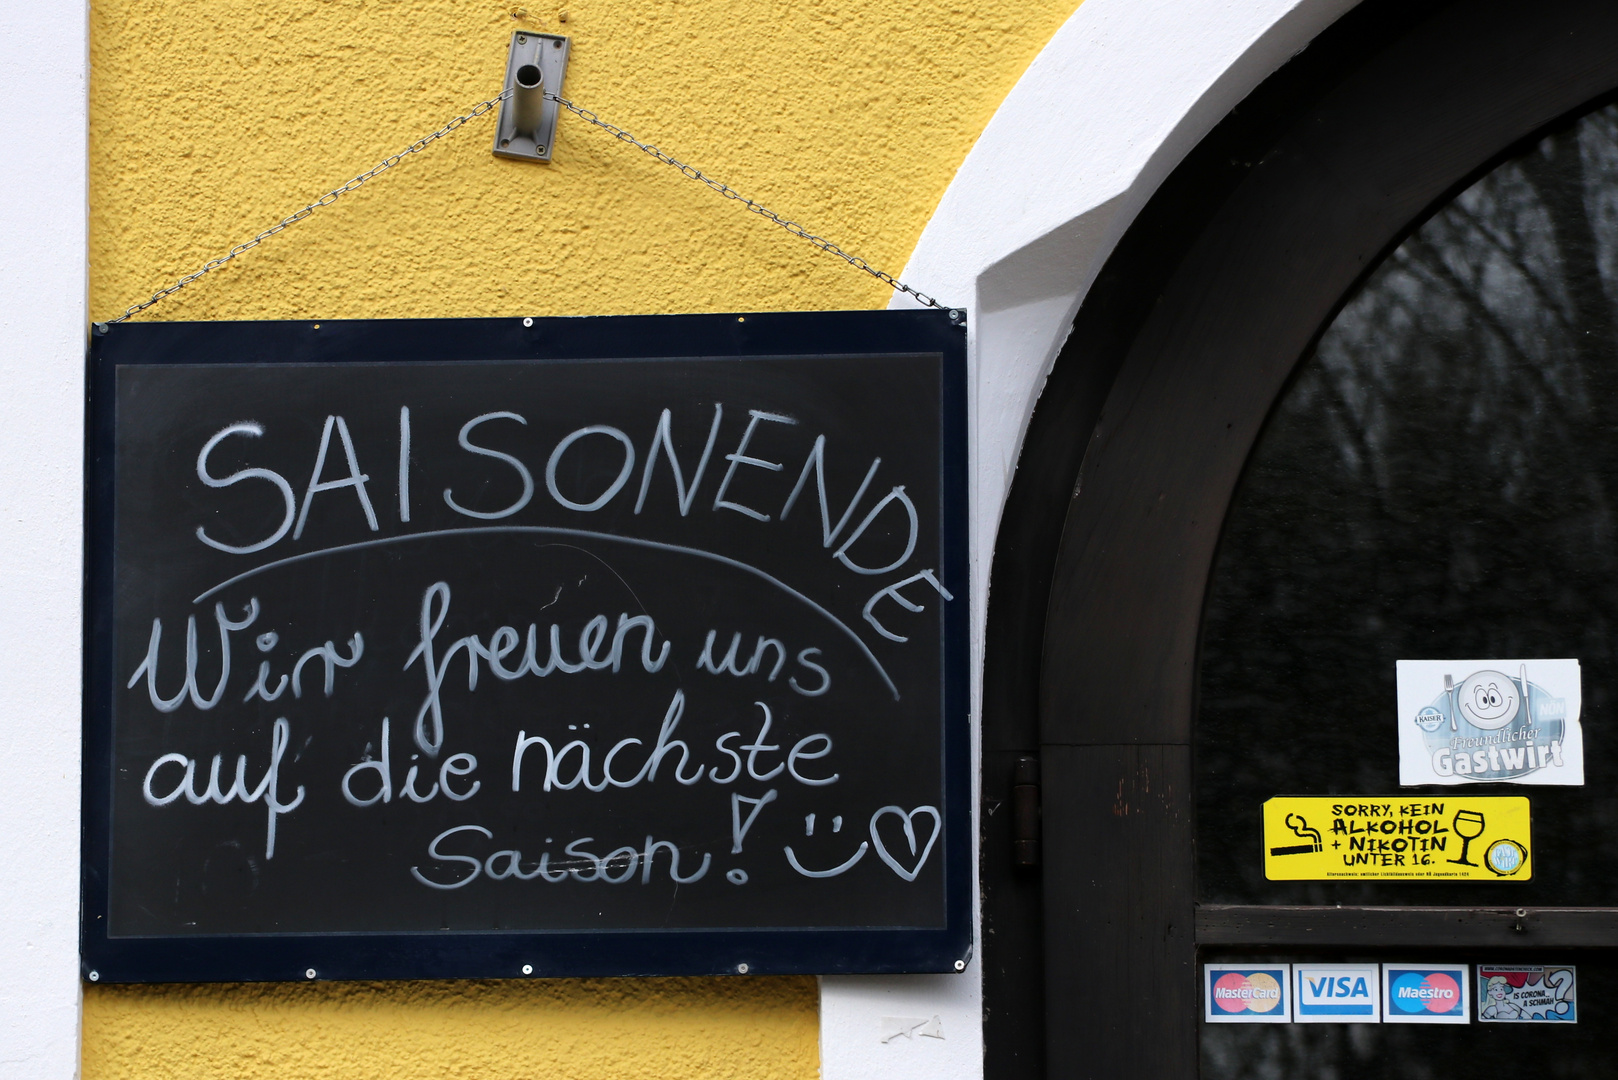 SAISONENDE
Wir freuen uns
auf die nächste
Saison!
KAISER
NÖN
Freundlicher
Gastwirt
SORRY, KEIN
ALKOHOL
+ NIKOTIN
UNTER 16.
MasterCard
VISA
Maestro
IS CORONA
A SCHMÄH
?